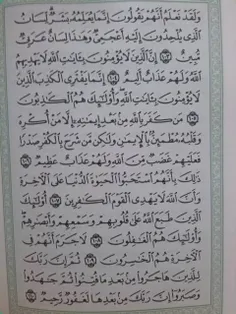 وَلَقَدْ نَعْلَمُ أَنَّهُمْ يَقُولُونَ إِنَّمَا يُعَلِّمُهُ بَشَرٌ لِّسَانُ
الَّذِي يُلْحِدُونَ إِلَيْهِ أَعْجَمِيٌّ وَهَٰذَا لِسَانٌ عَرَبِيٌّ
مُّبِينٌ ١٠٣ إِنَّ الَّذِينَ لَا يُؤْمِنُونَ بِـَٔايَٰتِ اللَّهِ لَا يَهْدِيهِمُ
اللَّهُ وَلَهُمْ عَذَابٌ أَلِيمٌ ١٠٤ إِنَّمَا يَفْتَرِي الْكَذِبَ الَّذِينَ
لَا يُؤْمِنُونَ بِـَٔايَٰتِ اللَّهِ وَأُولَٰئِكَ هُمُ الْكَٰذِبُونَ
١٠٥ مَن كَفَرَ بِاللَّهِ مِنۢ بَعْدِ إِيمَٰنِهِ إِلَّا مَنْ أُكْرِهَ
وَقَلْبُهُ مُطْمَئِنٌّۢ بِالْإِيمَٰنِ وَلَٰكِن مَّن شَرَحَ بِالْكُفْرِ صَدْرًا
فَعَلَيْهِمْ غَضَبٌ مِّنَ اللَّهِ وَلَهُمْ عَذَابٌ عَظِيمٌ ١٠٦
ذَٰلِكَ بِأَنَّهُمُ اسْتَحَبُّوا الْحَيَوٰةَ الدُّنْيَا عَلَى الْآخِرَةِ
وَأَنَّ اللَّهَ لَا يَهْدِي الْقَوْمَ الْكَٰفِرِينَ ١٠٧ أُولَٰئِكَ
الَّذِينَ طَبَعَ اللَّهُ عَلَىٰ قُلُوبِهِمْ وَسَمْعِهِمْ وَأَبْصَٰرِهِمْ
وَأُولَٰئِكَ هُمُ الْغَٰفِلُونَ ١٠٨ لَا جَرَمَ أَنَّهُمْ فِي
الْآخِرَةِ هُمُ الْخَٰسِرُونَ ١٠٩ ثُمَّ إِنَّ رَبَّكَ
لِلَّذِينَ هَاجَرُوا مِنۢ بَعْدِ مَا فُتِنُوا ثُمَّ جَٰهَدُوا
وَصَبَرُوا إِنَّ رَبَّكَ مِنۢ بَعْدِهَا لَغَفُورٌ رَّحِيمٌ ١١٠